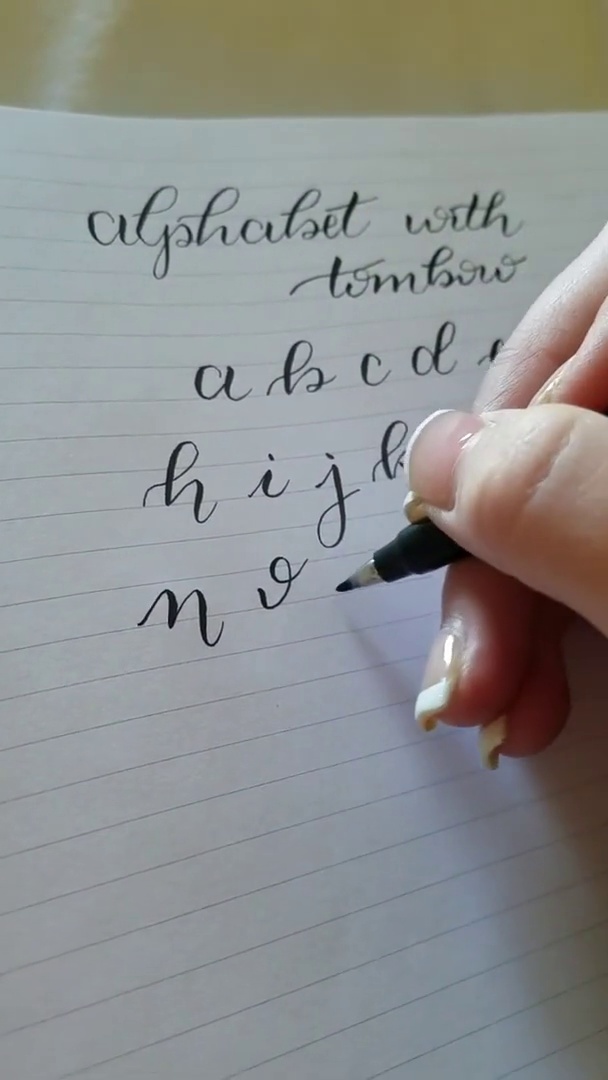 alphabet with
tombow
a b c d
h i j k
n o